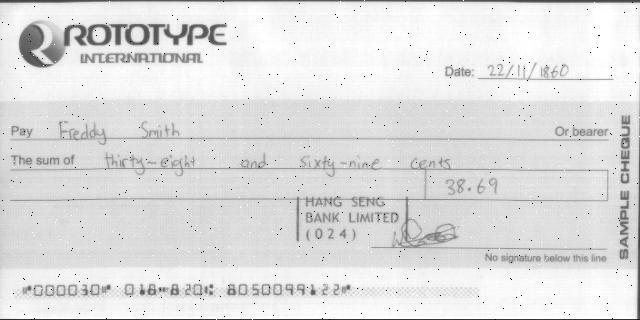 ROTOTYPE
INTERNATIONAL
Date: 22/11/1860
Pay Freddy Smith Or bearer
The sum of thirty-eight and sixty-nine cents
38.69
HANG SENG
BANK LIMITED
(024)
No signature below this line
SAMPLE CHEQUE
"000030" 018"820: 8050099122"